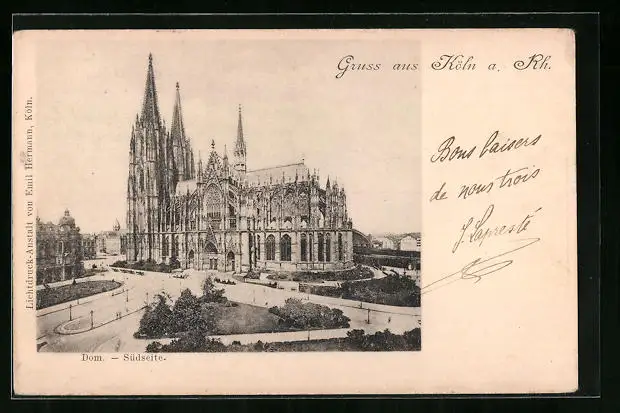 Gruss aus Köln a. Rh.
Bons baisers
de nous trois
J. Lapresté
Dom. – Südseite.
Lichtdruck-Anstalt von Emil Hermann, Köln.